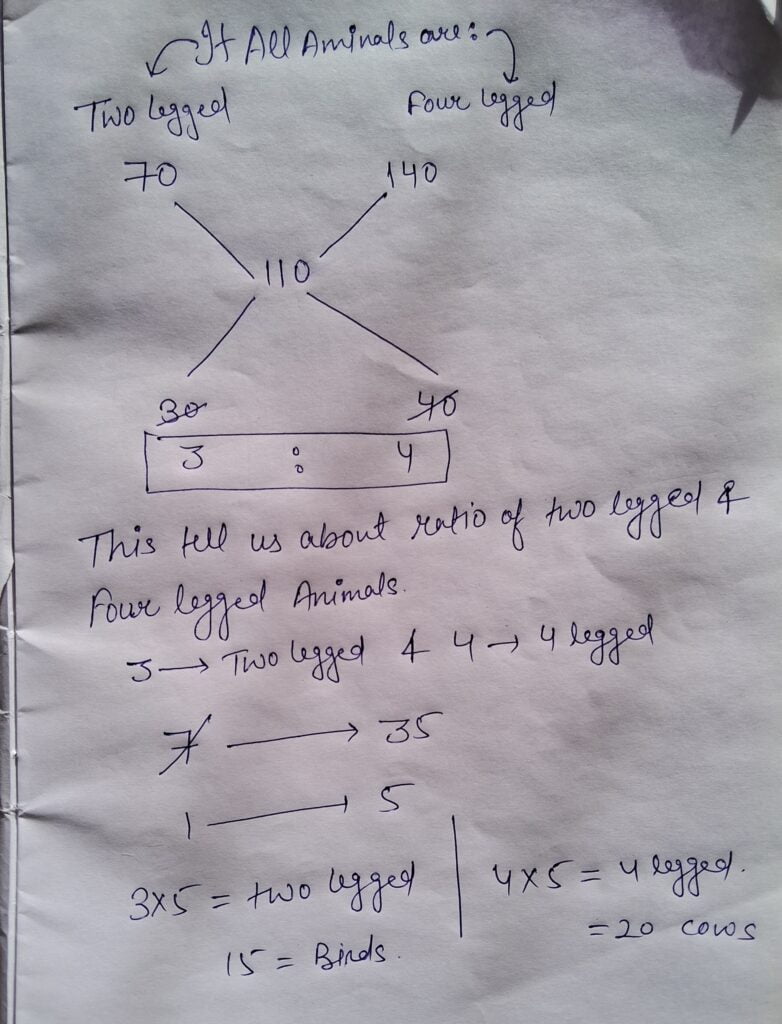 If All Aminals are:
Two legged Four legged
70 140
110
30 40
3 : 4
This tell us about ratio of two legged &
Four legged Animals.
3 → Two legged & 4 → 4 legged
7 → 35
1 → 5
3x5 = two legged 4x5 = 4 legged.
15 = Birds. = 20 cows